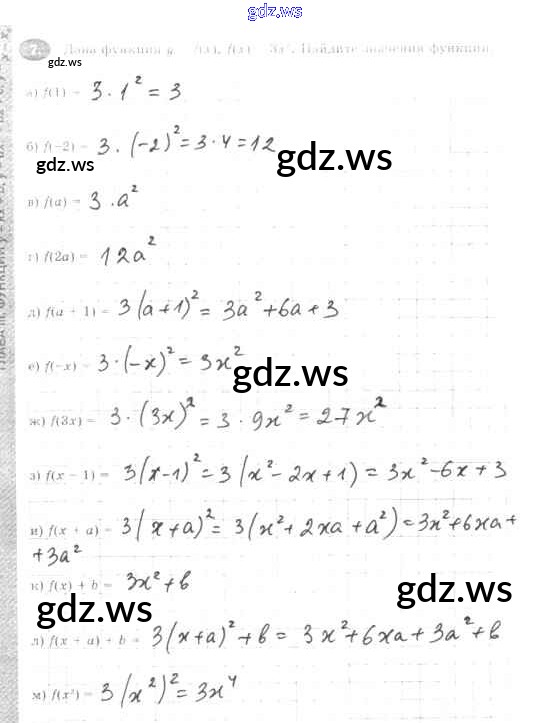 gdz.ws
7. Дана функция y = f(x), f(x) = 3x². Найдите значения функции.
gdz.ws
а) f(1) = 3 · 1² = 3
б) f(-2) = 3 · (-2)² = 3 · 4 = 12
gdz.ws
gdz.ws
в) f(a) = 3 · a²
г) f(2a) = 12a²
д) f(a + 1) = 3(a+1)² = 3a² + 6a + 3
е) f(-x) = 3 · (-x)² = 3x²
gdz.ws
ж) f(3x) = 3 · (3x)² = 3 · 9x² = 27x²
з) f(x - 1) = 3(x-1)² = 3(x² - 2x + 1) = 3x² - 6x + 3
и) f(x + a) = 3(x+a)² = 3(x² + 2xa + a²) = 3x² + 6xa +
+ 3a²
к) f(x) + b = 3x² + b
gdz.ws
gdz.ws
л) f(x + a) + b = 3(x+a)² + b = 3x² + 6xa + 3a² + b
м) f(x²) = 3(x²)² = 3x⁴